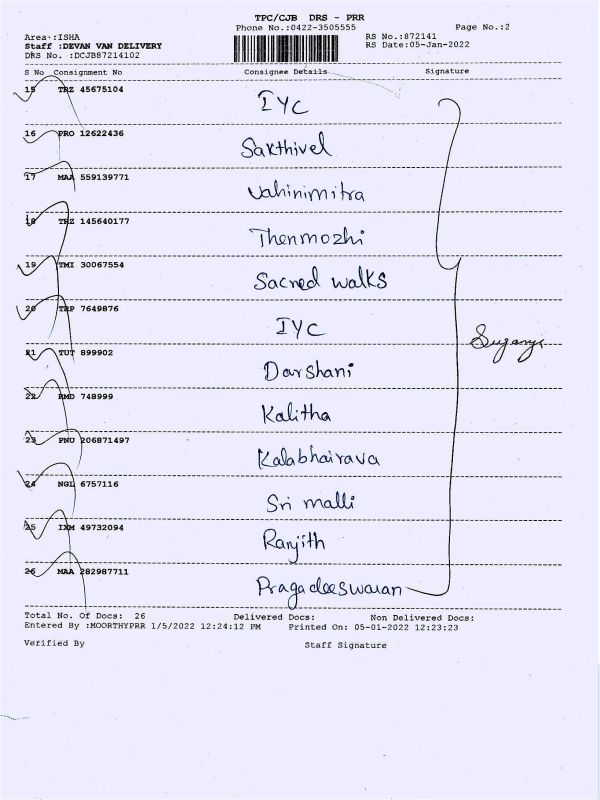 TPC/CJB DRS - PRR
Phone No.:0422-3505555
Page No.:2
Area :ISHA
RS No.:872141
Staff :DEVAN VAN DELIVERY
RS Date:05-Jan-2022
DRS No. :DCJB87214102
S No Consignment No Consignee Details Signature
15 TRZ 45675104 IYC
16 PRO 12622436 Sakthivel
17 MAA 559139771 Vahinimitra
18 TRZ 145640177 Thenmozhi
19 TMI 30067554 Sacred walks
20 TRP 7649876 IYC
21 TUT 899902 Darshani
22 RMD 748999 Kalitha
23 PNU 206871497 Kalabhairava
24 NGL 6757116 Sri malli
25 IXM 49732094 Ranjith
26 MAA 282987711 Pragadeeswaran
Suganya
Total No. Of Docs: 26 Delivered Docs: Non Delivered Docs:
Entered By :MOORTHYPRR 1/5/2022 12:24:12 PM Printed On: 05-01-2022 12:23:23
Verified By Staff Signature